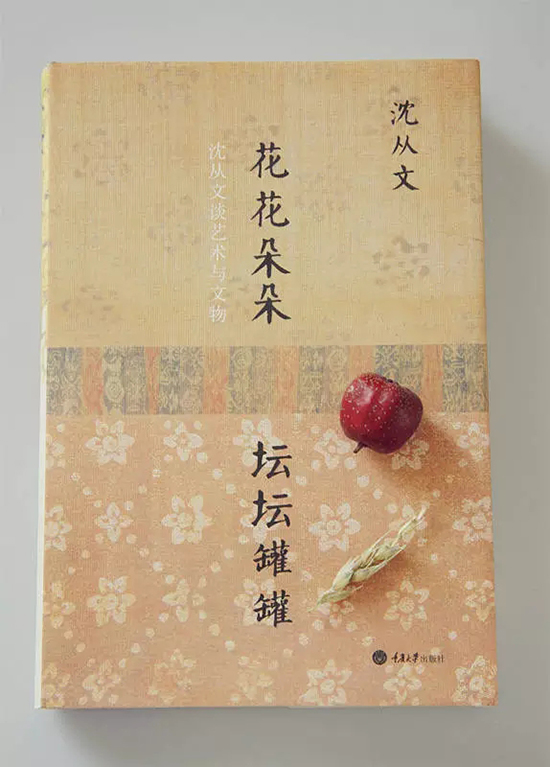 沈从文
花花朵朵
坛坛罐罐
沈从文谈艺术与文物
重庆大学出版社